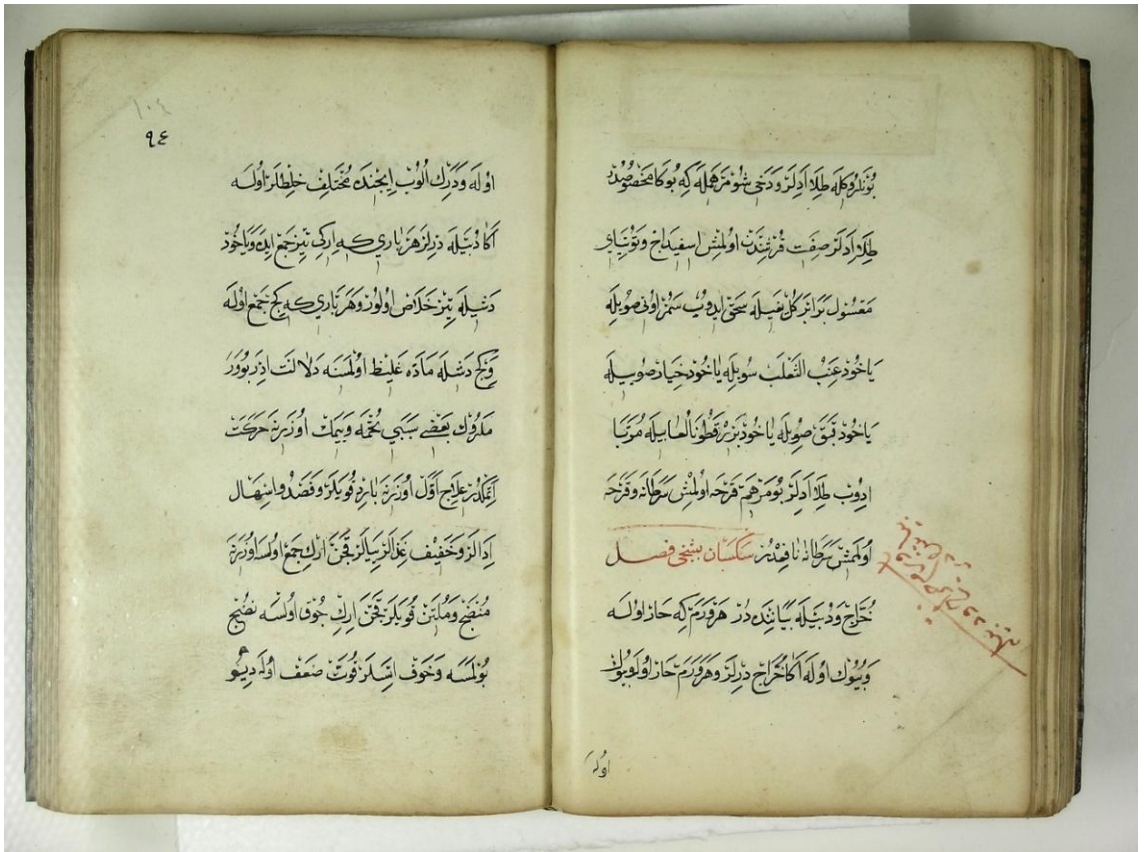 بونلروكله طلا ادلر ودخی شو مرهمله كه بوكا مخصوصدر
طلا ادلر صفت قرشندن اولمش اسفيداج وتوتياى
مغسول برابر كل ياغيله سحق ايدوب سمز اوتی صويله
ياخود عنب الثعلب سويله ياخود خيار صويله
ياخود قبق صويله ياخود بزر قطونا لعابيله مرتبا
ادوب طلا ادلر بو مرهم قرحه اولمش سرطانه وقرحه
اولمامش سرطانه نافعدر سكسان بشنجی فصل
خراج ودبيله بياننده در هر ورم كه حار اوله
وبيوك اوله اكا خراج ديرلر وهر ورم حار اوله وبيوك
اوله
١٠٤
٩٤
اوله ودرك الوب ايچنده مختلف خلطلر اوله
اكا دبيله ديرلر هر ياري كه اركی تيز جمع ايده وياخود
دشيله تيز خلاص اولور وهر ياري كه كج جمع اوله
وكج دشله ماده غليظ اولمسنه دلالت ايدر بو ور
ملروك بعضی سببی تخمه ويمك اوزرينه حركت
اتمكدر علاج اول اوزرينه بارد قويلر وفصد واسهال
ادالر وخفيف غدالر يیالر قچن ارك جمع اولسا اوزرينه
منضج وملين قويلر قچن ارك چوق اولسه نضج
بولمسه وخوف اتسلر قوت ضعف اوله ديو